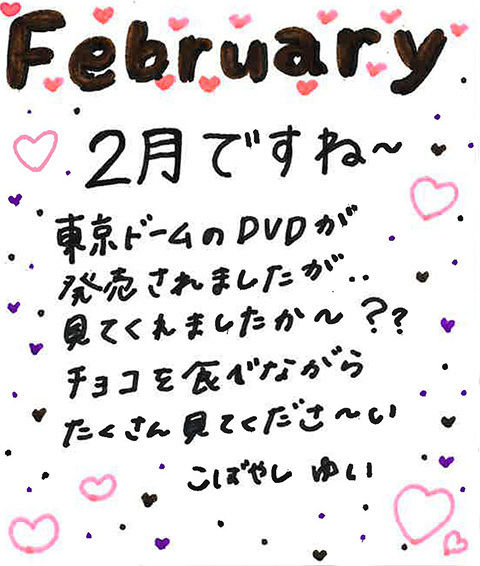 February
2月ですね～
東京ドームのDVDが
発売されましたが‥
見てくれましたか～??
チョコを食べながら
たくさん見てくださ～い
こばやし ゆい